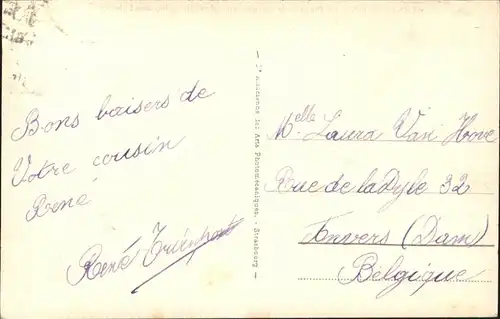 Bons baisers de
Votre cousin
René
René
— Cie Alsacienne des Arts Photomécaniques, - Strasbourg —
Melle Laura Van Hove
Rue de la Dyle 32
Anvers (Dam)
Belgique